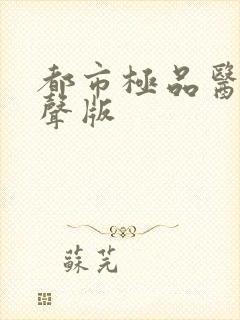 都市極品醫
聲版
蘇芫